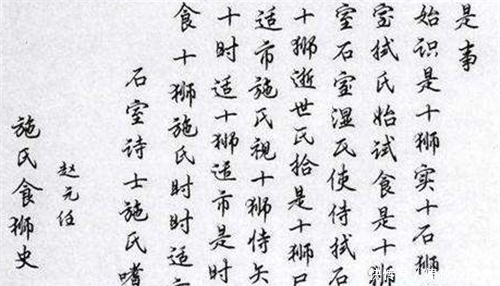 施氏食狮史
赵元任
石室诗士施氏嗜
食十狮施氏时时适市
十时适十狮适市是时
适市施氏视十狮恃矢
十狮逝世氏拾是十狮尸
室石室湿氏使侍拭石
室拭氏始试食是十狮
始识是十狮实十石狮
是事